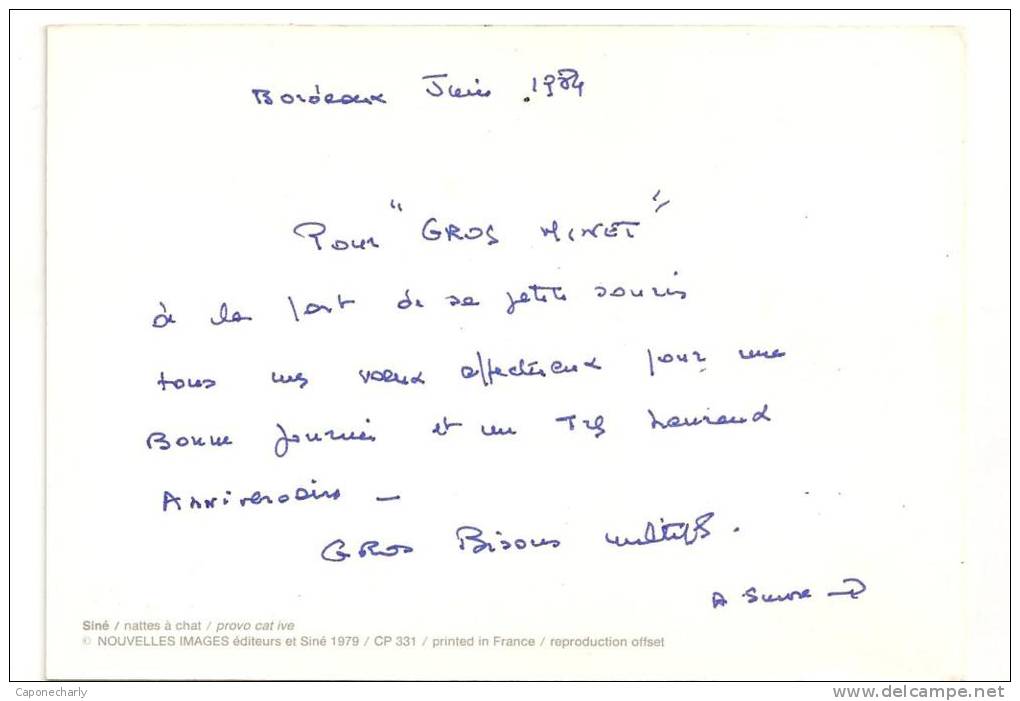 Bordeaux Juin 1984
Pour "GROS MINET"
de la part de sa petite souris
tous mes voeux affectueux pour une
Bonne journée et un Très heureux
Anniversaire —
GROS Bisous multiples.
A Suivre →
Siné / nattes à chat / provo cat ive
© NOUVELLES IMAGES éditeurs et Siné 1979 / CP 331 / printed in France / reproduction offset
Caponecharly
www.delcampe.net